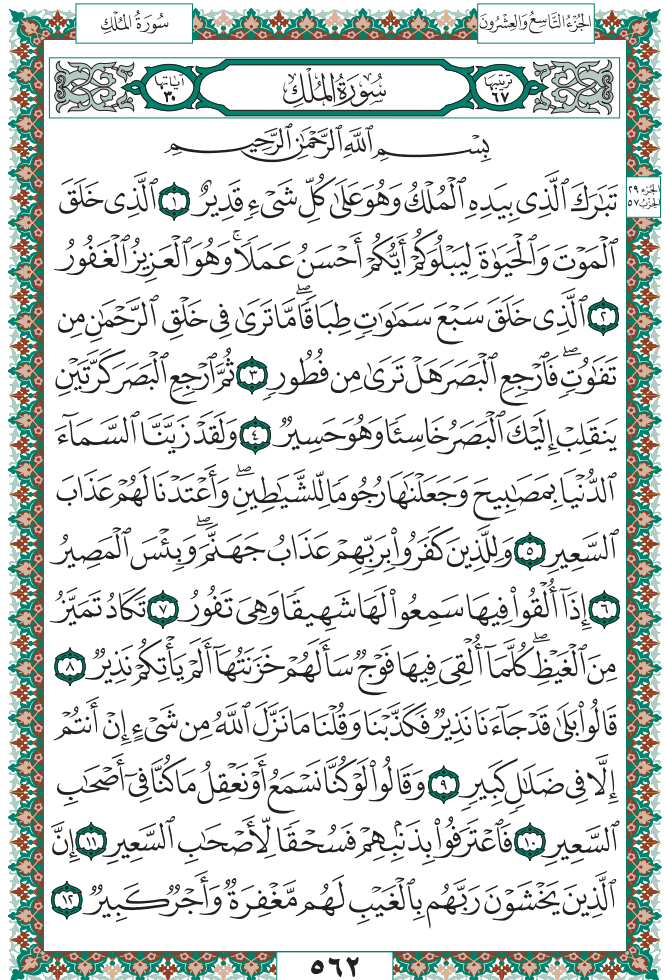 سُورَةُ المُلْكِ
الجُزْءُ التَّاسِعُ وَالعِشْرُونَ
ترتيبها ٦٧
سُورَةُ المُلْكِ
آياتها ٣٠
بِسْمِ ٱللَّهِ ٱلرَّحْمَٰنِ ٱلرَّحِيمِ
الجزء ٢٩
الحزب ٥٧
تَبَٰرَكَ ٱلَّذِى بِيَدِهِ ٱلْمُلْكُ وَهُوَ عَلَىٰ كُلِّ شَىْءٍ قَدِيرٌ ١ ٱلَّذِى خَلَقَ
ٱلْمَوْتَ وَٱلْحَيَوٰةَ لِيَبْلُوَكُمْ أَيُّكُمْ أَحْسَنُ عَمَلًا ۚ وَهُوَ ٱلْعَزِيزُ ٱلْغَفُورُ
٢ ٱلَّذِى خَلَقَ سَبْعَ سَمَٰوَٰتٍ طِبَاقًا ۖ مَّا تَرَىٰ فِى خَلْقِ ٱلرَّحْمَٰنِ مِن
تَفَٰوُتٍ ۖ فَٱرْجِعِ ٱلْبَصَرَ هَلْ تَرَىٰ مِن فُطُورٍ ٣ ثُمَّ ٱرْجِعِ ٱلْبَصَرَ كَرَّتَيْنِ
يَنقَلِبْ إِلَيْكَ ٱلْبَصَرُ خَاسِئًا وَهُوَ حَسِيرٌ ٤ وَلَقَدْ زَيَّنَّا ٱلسَّمَآءَ
ٱلدُّنْيَا بِمَصَٰبِيحَ وَجَعَلْنَٰهَا رُجُومًا لِّلشَّيَٰطِينِ ۖ وَأَعْتَدْنَا لَهُمْ عَذَابَ
ٱلسَّعِيرِ ٥ وَلِلَّذِينَ كَفَرُوا۟ بِرَبِّهِمْ عَذَابُ جَهَنَّمَ ۖ وَبِئْسَ ٱلْمَصِيرُ
٦ إِذَآ أُلْقُوا۟ فِيهَا سَمِعُوا۟ لَهَا شَهِيقًا وَهِىَ تَفُورُ ٧ تَكَادُ تَمَيَّزُ
مِنَ ٱلْغَيْظِ ۖ كُلَّمَآ أُلْقِىَ فِيهَا فَوْجٌ سَأَلَهُمْ خَزَنَتُهَآ أَلَمْ يَأْتِكُمْ نَذِيرٌ ٨
قَالُوا۟ بَلَىٰ قَدْ جَآءَنَا نَذِيرٌ فَكَذَّبْنَا وَقُلْنَا مَا نَزَّلَ ٱللَّهُ مِن شَىْءٍ إِنْ أَنتُمْ
إِلَّا فِى ضَلَٰلٍ كَبِيرٍ ٩ وَقَالُوا۟ لَوْ كُنَّا نَسْمَعُ أَوْ نَعْقِلُ مَا كُنَّا فِىٓ أَصْحَٰبِ
ٱلسَّعِيرِ ١٠ فَٱعْتَرَفُوا۟ بِذَنۢبِهِمْ فَسُحْقًا لِّأَصْحَٰبِ ٱلسَّعِيرِ ١١ إِنَّ
ٱلَّذِينَ يَخْشَوْنَ رَبَّهُم بِٱلْغَيْبِ لَهُم مَّغْفِرَةٌ وَأَجْرٌ كَبِيرٌ ١٢
٥٦٢